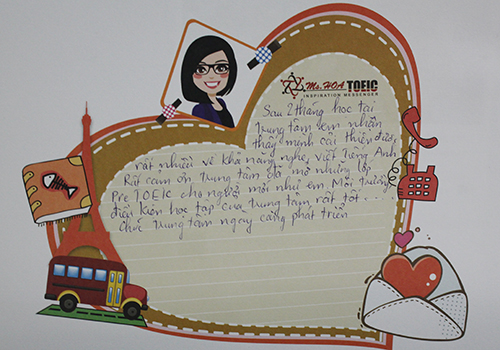 Ms. HOA TOEIC
INSPIRATION MESSENGER
Sau 2 tháng học tại
trung tâm em nhận
thấy mình cải thiện được
rất nhiều về khả năng nghe, viết Tiếng Anh
Rất cảm ơn trung tâm đã mở những lớp
Pre TOEIC cho người mới như em. Môi trường,
điều kiện học tập của trung tâm rất tốt ...
Chúc trung tâm ngày càng phát triển